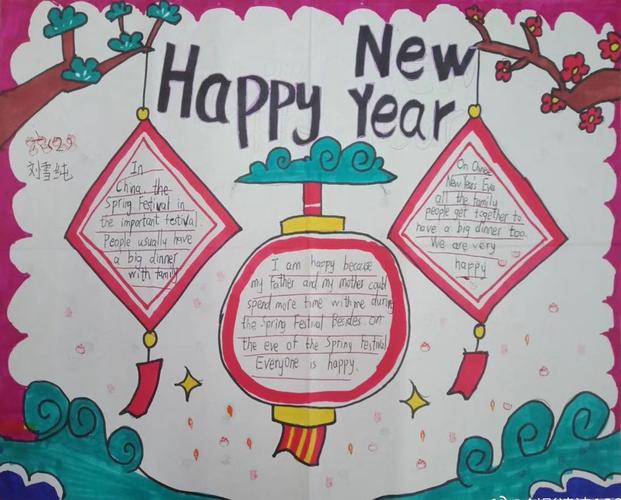 Happy New Year
刘雪纯
In
China, the
Spring Festival in
the important festival.
People usually have
a big dinner
with family
I am happy because
my father and my mother could
spend more time with me during
the Spring Festival Besides on
the eve of the Spring Festival
Everyone is happy.
On Chinese
New Year's Eve
all the family
people get together to
have a big dinner too.
We are very
happy